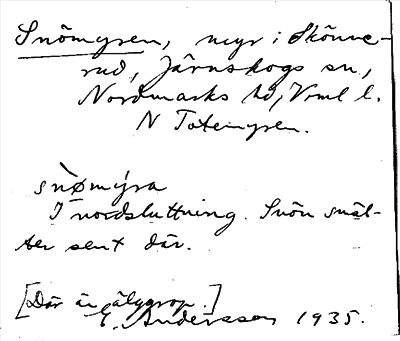 Snömyren, myr i Skönne-
rud, Järnskogs sn,
Nordmarks hd, Vrml l.
N Totemyren.
snø̀mýra
I nordsluttning. Snön smäl-
ter sent där.
[Där är älggrop.]
E. Andersson 1935.